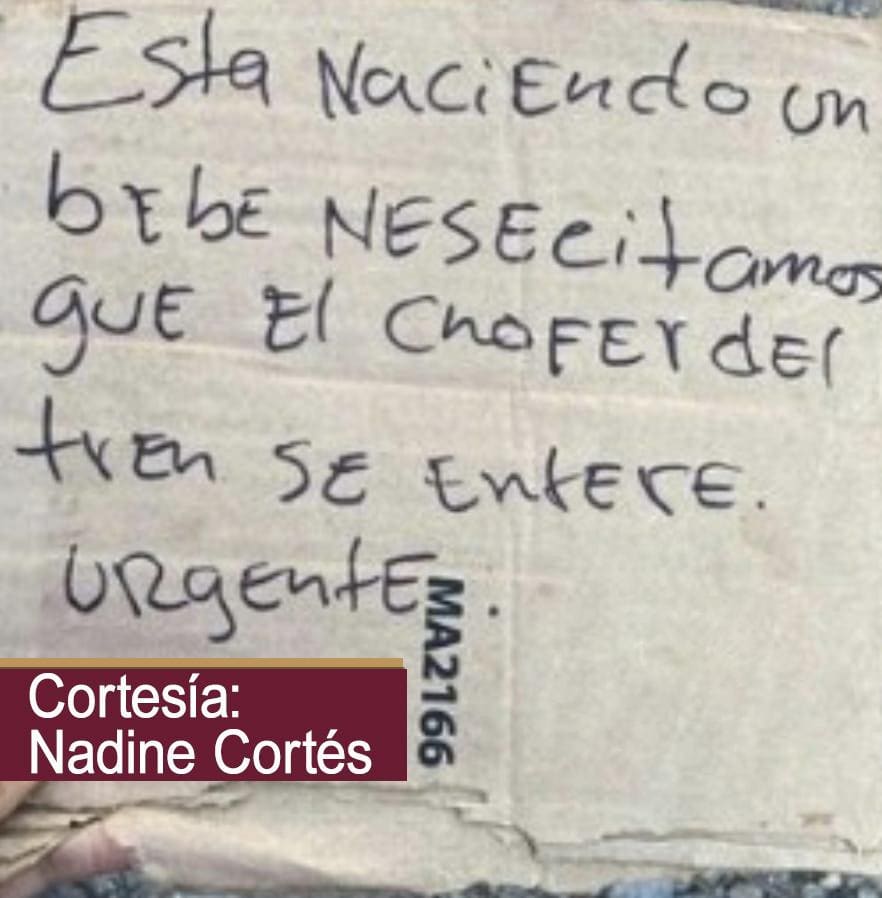 Esta Naciendo un
bEbE NESEcitamos
quE El ChoFEr dEl
trEn SE EntErE.
URgEntE.
MA2166
Cortesía:
Nadine Cortés